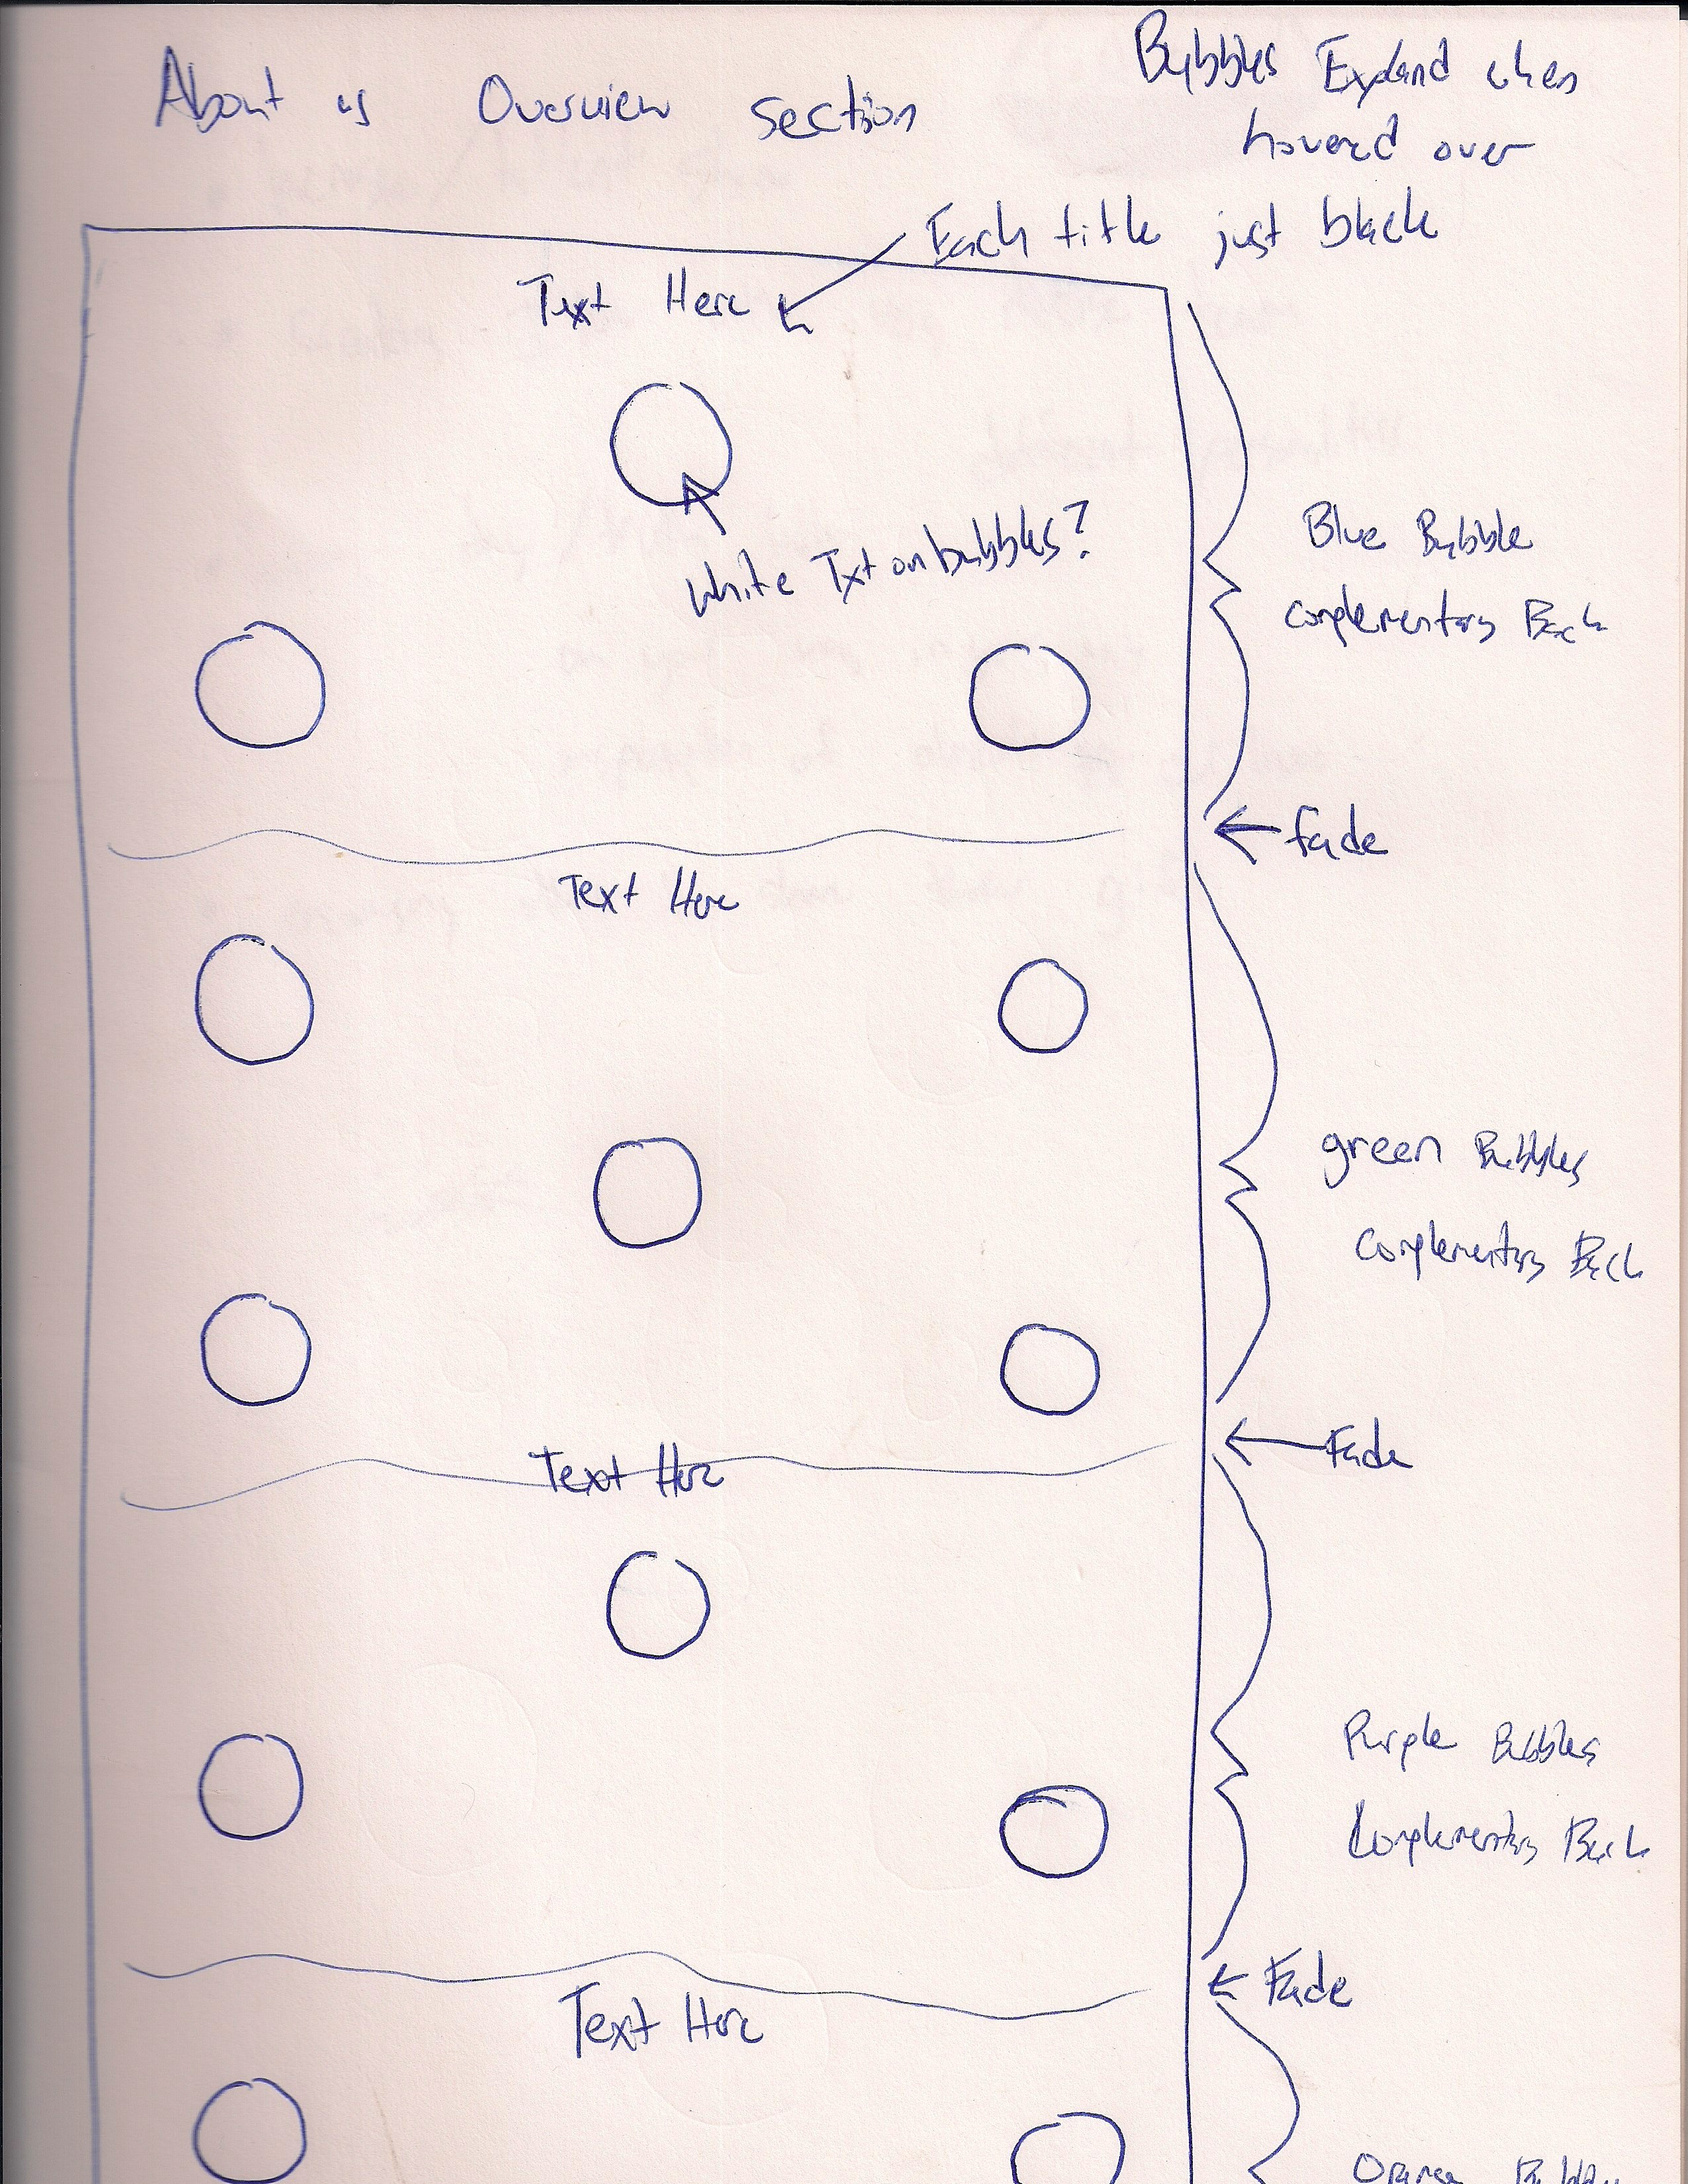 About us Overview section
Bubbles Expand when
hoverd over
Each title just black
Text Here
White Txt on bubbles?
Blue Bubble
complementary Back
fade
Text Here
green Bubbles
Complementary Back
Fade
Text Here
Purple Bubbles
Complementary Back
Fade
Text Here
Orange Bubbles